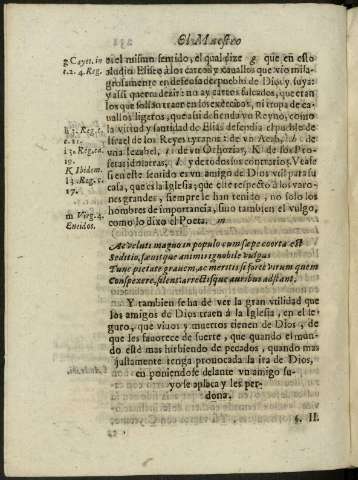 El Maestro
g Cayet. in
c.2. 4. Reg.
es el mismo sentido, el qual dize g que en esto
aludiò Eliseo à los carros y cauallos que vio mila-
grosamente en defensa del pueblo de Dios, y suya:
y assi quería dezir: no ay carros falcados, que eran
los que solían traer en los exercitos, ni tropa de ca-
uallos ligeros, que assi defienda vn Reyno, como
la virtud y santidad de Elias defendia el pueblo de
h 3. Reg. c.
Israel de los Reyes tyranos: de vn Acab, h de
vna Iezabel, de vn Ochozias, K de los Pro-
19.
K Ibidem.
fetas idolatras, l y de todos sus contrarios. Vease
13. Reg. c.
si en este sentido es vn amigo de Dios vtil para su
17.
casa, que es la Iglesia; que este respecto à los varo-
nes grandes, siempre le han tenido, no solo los
m Virg. 4.
hombres de importancia, sino tambien el vulgo,
Eneidos.
como lo dixo el Poeta. m
Ac veluti magno in populo cum sæpe coorta est
Seditio, sæuitque animis ignobile vulgus
Tunc pietate grauem, ac meritis si forte virum quem
Conspexere, silent arrectisque auribus adstant.
Y tambien se ha de ver la gran vtilidad que
los amigos de Dios traen à la Iglesia, en el se-
guro, que viuos y muertos tienen de Dios, de
que les fauorece de suerte, que quando el mun-
do estè mas hirbiendo de pecados, quando mas
justamente tenga prouocada la ira de Dios,
en poniendose delante vn amigo su-
yo se aplaca y les per-
dona.
§. II.